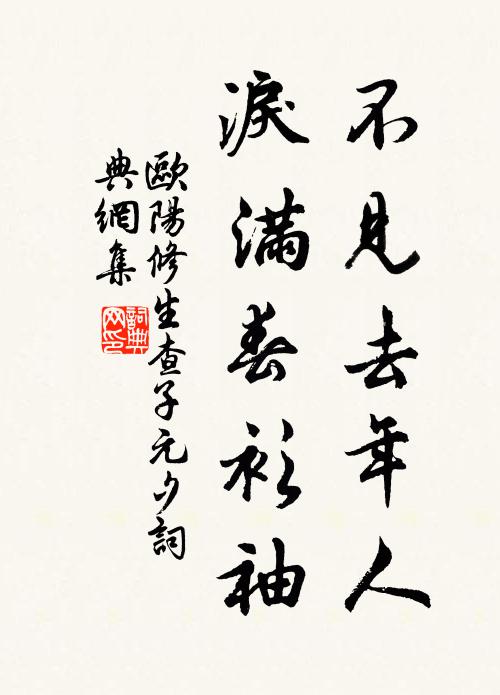 不見去年人
淚滿春衫袖
歐陽修生查子元夕詞
典網集
詞典
网印